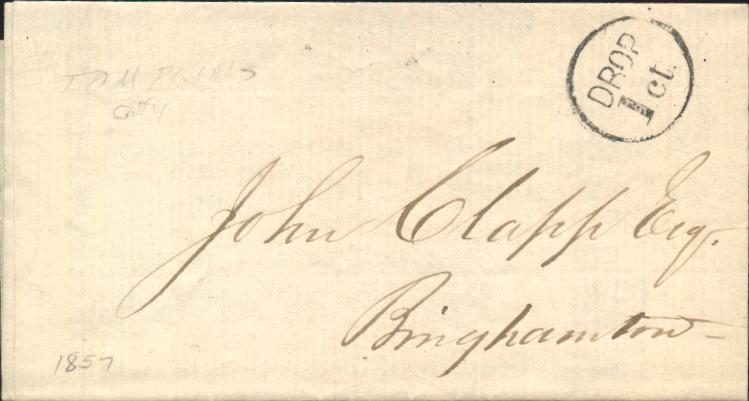 TOMPKINS
DROP
1ct.
John Clapp Esq.
Binghamton
1857